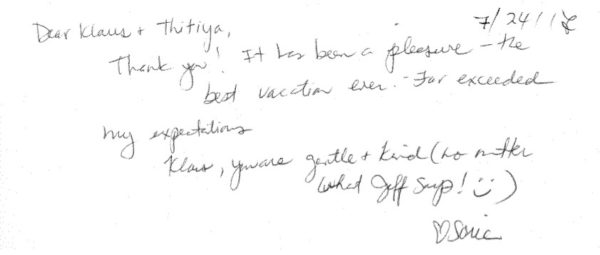 7/24/12
Dear Klaus + Thitiya,
Thank you! It has been a pleasure - the
best vacation ever. Far exceeded
my expectations
Klaus, you are gentle + kind (no matter
what Jeff says! ☺)
♡